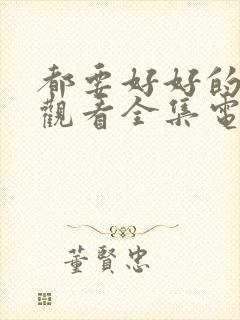 都要好好的
觀看全集電
董賢忠